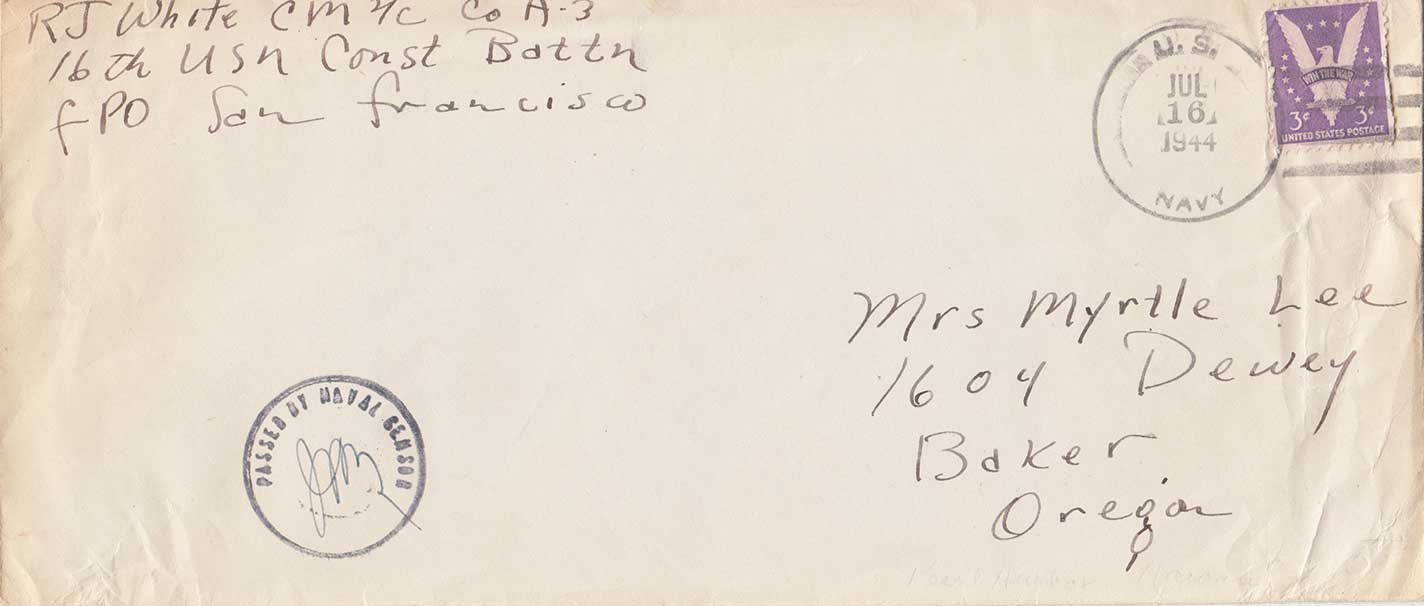 RJ White CM 2/c Co A-3
16th USN Const Battn
FPO San Francisco
U.S.
JUL
16
1944
NAVY
WIN THE WAR
3¢ 3¢
UNITED STATES POSTAGE
Mrs Myrtle Lee
1604 Dewey
Baker
Oregon
PASSED BY NAVAL CENSOR
Pearl Harbor